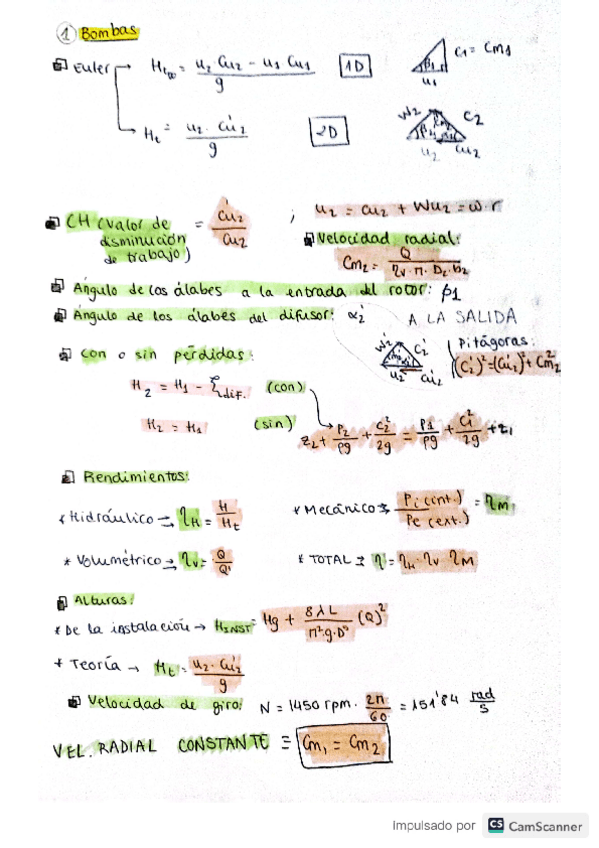 ① Bombas
Euler → Ht∞ = (u2·Cu2 - u1 Cu1)/g 1D C1 = Cm1
β1
u1
→ Ht = (u2·Cu2')/g 2D W2 C2
u2 Cu2
CH (valor de disminución de trabajo) = Cu2'/Cu2 ; u2 = Cu2 + Wu2 = ω·r
Velocidad radial:
Cm2 = Q/(ηv·π·D2·b2)
Ángulo de los álabes a la entrada del rotor: β1
Ángulo de los álabes del difusor: α2' A LA SALIDA
Pitágoras:
W2' C2'
u2 Cu2'
(C2')² = (Cu2')² + Cm2²
Con o sin pérdidas:
H2 = H1 - ξdif. (con)
H2 = H1 (sin)
z2 + P2/ρg + C2²/2g = P1/ρg + C1²/2g + z1
Rendimientos:
* Hidráulico → ηH = H/Ht * Mecánico → Pi (int.)/Pe (ext.) = ηM
* Volumétrico → ηv = Q/Q' * TOTAL → η = ηH·ηv ηM
Alturas:
* De la instalación → HINST = Hg + 8λL/(π²·g·D⁵) (Q)²
* Teoría → Ht = (u2·Cu2')/g
Velocidad de giro: N = 1450 rpm · 2π/60 = 151'84 rad/s
VEL. RADIAL CONSTANTE ≡ Cm1 = Cm2
Impulsado por CS CamScanner